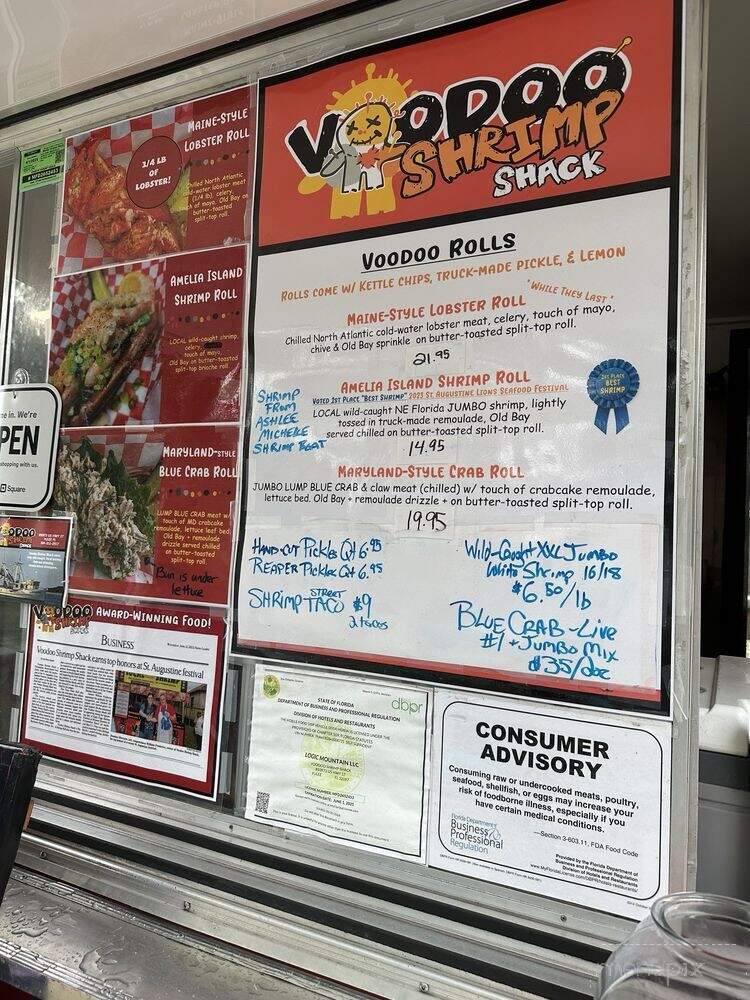 MAINE-STYLE
LOBSTER ROLL
1/4 LB
OF
LOBSTER!
Chilled North Atlantic
cold-water lobster meat
(1/4 lb), celery,
touch of mayo, Old Bay on
butter-toasted
split-top roll.
AMELIA ISLAND
SHRIMP ROLL
LOCAL wild-caught shrimp,
celery,
touch of mayo,
Old Bay on butter-toasted
split-top brioche roll.
MARYLAND-STYLE
BLUE CRAB ROLL
LUMP BLUE CRAB meat w/
touch of MD crabcake
remoulade, lettuce leaf bed
Old Bay + remoulade
drizzle served chilled
on butter-toasted
split-top roll.
Bun is under
lettuce
me in. We're
PEN
shopping with us.
Square
VOODOO
SHRIMP
AWARD-WINNING FOOD!
BUSINESS
Voodoo Shrimp Shack earns top honors at St. Augustine festival
VOODOO
SHRIMP
SHACK
VOODOO ROLLS
ROLLS COME W/ KETTLE CHIPS, TRUCK-MADE PICKLE, & LEMON
"WHILE THEY LAST"
MAINE-STYLE LOBSTER ROLL
Chilled North Atlantic cold-water lobster meat, celery, touch of mayo,
chive & Old Bay sprinkle on butter-toasted split-top roll.
21.95
AMELIA ISLAND SHRIMP ROLL
VOTED 1ST PLACE "BEST SHRIMP" 2023 ST. AUGUSTINE LIONS SEAFOOD FESTIVAL
LOCAL wild-caught NE Florida JUMBO shrimp, lightly
tossed in truck-made remoulade, Old Bay
served chilled on butter-toasted split-top roll.
14.95
SHRIMP
FROM
ASHLEE
MICHELLE
SHRIMP BOAT
1ST PLACE
BEST
SHRIMP
MARYLAND-STYLE CRAB ROLL
JUMBO LUMP BLUE CRAB & claw meat (chilled) w/ touch of crabcake remoulade,
lettuce bed. Old Bay + remoulade drizzle + on butter-toasted split-top roll.
19.95
HAND CUT Pickles Qt 6.95
REAPER Pickles Qt 6.95
SHRIMP STREET TACO $9
2 tacos
Wild-Caught XXL Jumbo
White Shrimp 16/18
$6.50/lb
BLUE CRAB - Live
#1 + Jumbo Mix
$35/doz
STATE OF FLORIDA
DEPARTMENT OF BUSINESS AND PROFESSIONAL REGULATION
dbpr
DIVISION OF HOTELS AND RESTAURANTS
LOGIC MOUNTAIN LLC
VOODOO SHRIMP SHACK
EXPIRATION DATE: JUNE 1, 2025
CONSUMER
ADVISORY
Consuming raw or undercooked meats, poultry,
seafood, shellfish, or eggs may increase your
risk of foodborne illness, especially if you
have certain medical conditions.
—Section 3-603.11, FDA Food Code
Florida Department of
Business
Professional
Regulation
Provided by the Florida Department of
Business and Professional Regulation
Division of Hotels and Restaurants
www.MyFloridaLicense.com/DBPR/hotels-restaurants/